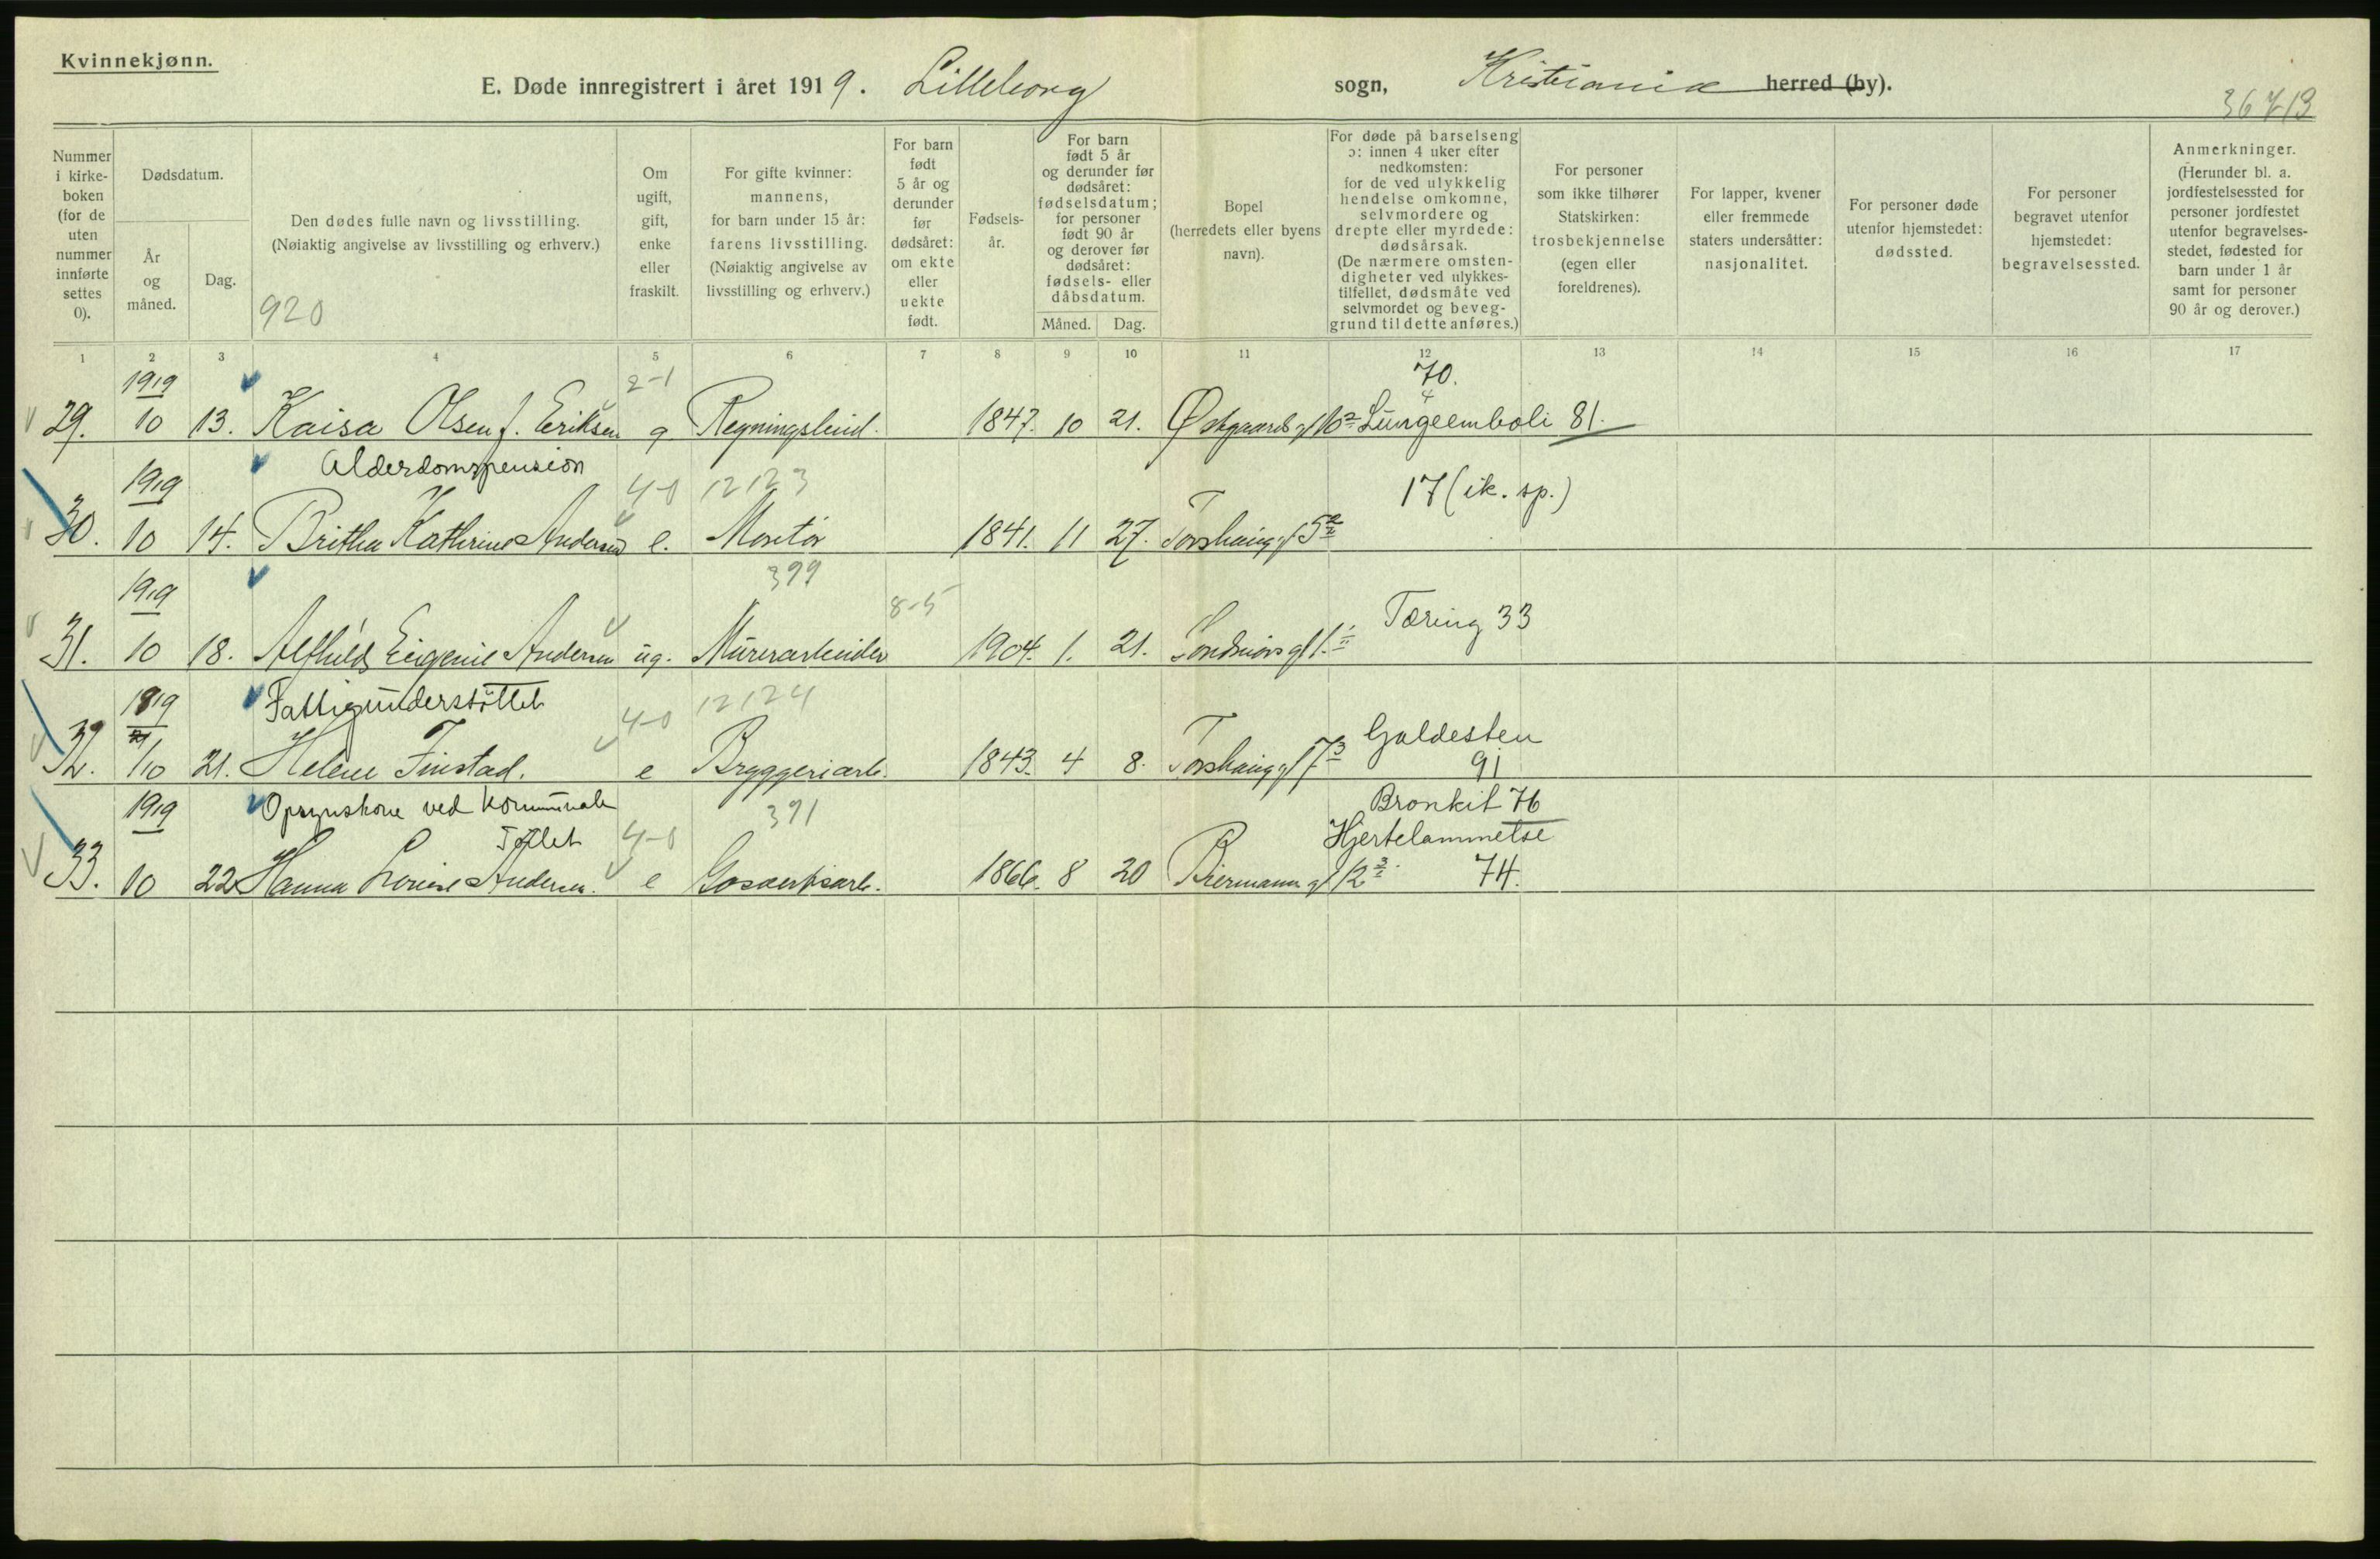 Kvinnekjønn.
E. Døde innregistrert i året 1919. Lilleborg sogn, Kristiania herred (by).
36713
Nummer i kirkeboken (for de uten nummer innførte settes 0).
Dødsdatum.
År og måned.
Dag.
Den dødes fulle navn og livsstilling.
(Nøiaktig angivelse av livsstilling og erhverv.)
920
Om ugift, gift, enke eller fraskilt.
For gifte kvinner: mannens, for barn under 15 år: farens livsstilling. (Nøiaktig angivelse av livsstilling og erhverv.)
For barn født 5 år og derunder før dødsåret: om ekte eller uekte født.
Fødselsår.
For barn født 5 år og derunder før dødsåret: fødselsdatum; for personer født 90 år og derover før dødsåret: fødsels- eller dåbsdatum.
Måned. Dag.
Bopel (herredets eller byens navn).
For døde på barselseng ɔ: innen 4 uker efter nedkomsten: for de ved ulykkelig hendelse omkomne, selvmordere og drepte eller myrdede: dødsårsak. (De nærmere omstendigheter ved ulykkestilfellet, dødsmåte ved selvmordet og beveggrund til dette anføres.)
For personer som ikke tilhører Statskirken: trosbekjennelse (egen eller foreldrenes).
For lapper, kvener eller fremmede staters undersåtter: nasjonalitet.
For personer døde utenfor hjemstedet: dødssted.
For personer begravet utenfor hjemstedet: begravelsessted.
Anmerkninger. (Herunder bl. a. jordfestelsessted for personer jordfestet utenfor begravelsesstedet, fødested for barn under 1 år samt for personer 90 år og derover.)
1 2 3 4 5 6 7 8 9 10 11 12 13 14 15 16 17
1919 2-1 70.
29. 10 13. Kaisa Olsen f. Eriksen g Regningsbud. 1847. 10 21. Østgaards gt Lungeemboli 81.
1919 Alderdomspension 4-0 12123 17 (ik. sp.)
30. 10 14. Britha Kathrine Andersen e. Montør 1841. 11 27. Torshaug gt 5
1919 399 8-5 Tæring 33
31. 10 18. Alfhild Eugenie Andersen ug. Murerarbeider 1904. 1. 21.
1919 Fattigunderstøttet 4-0 12124 Galdesten
32. 10 21. Helene Finstad. e Bryggeriarb. 1843. 4 8. Torshaug gt 7 91
1919 Opsynskone ved kommunale 391 Bronkit 76
Toilet 4-0 Hjertelammelse
33. 10 22 Hanna Lovise Andersen. e Gasverksarb. 1866. 8 20 Biermanns gt 12 74.